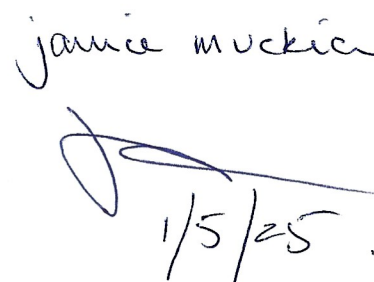 janice muckian
1/5/25.